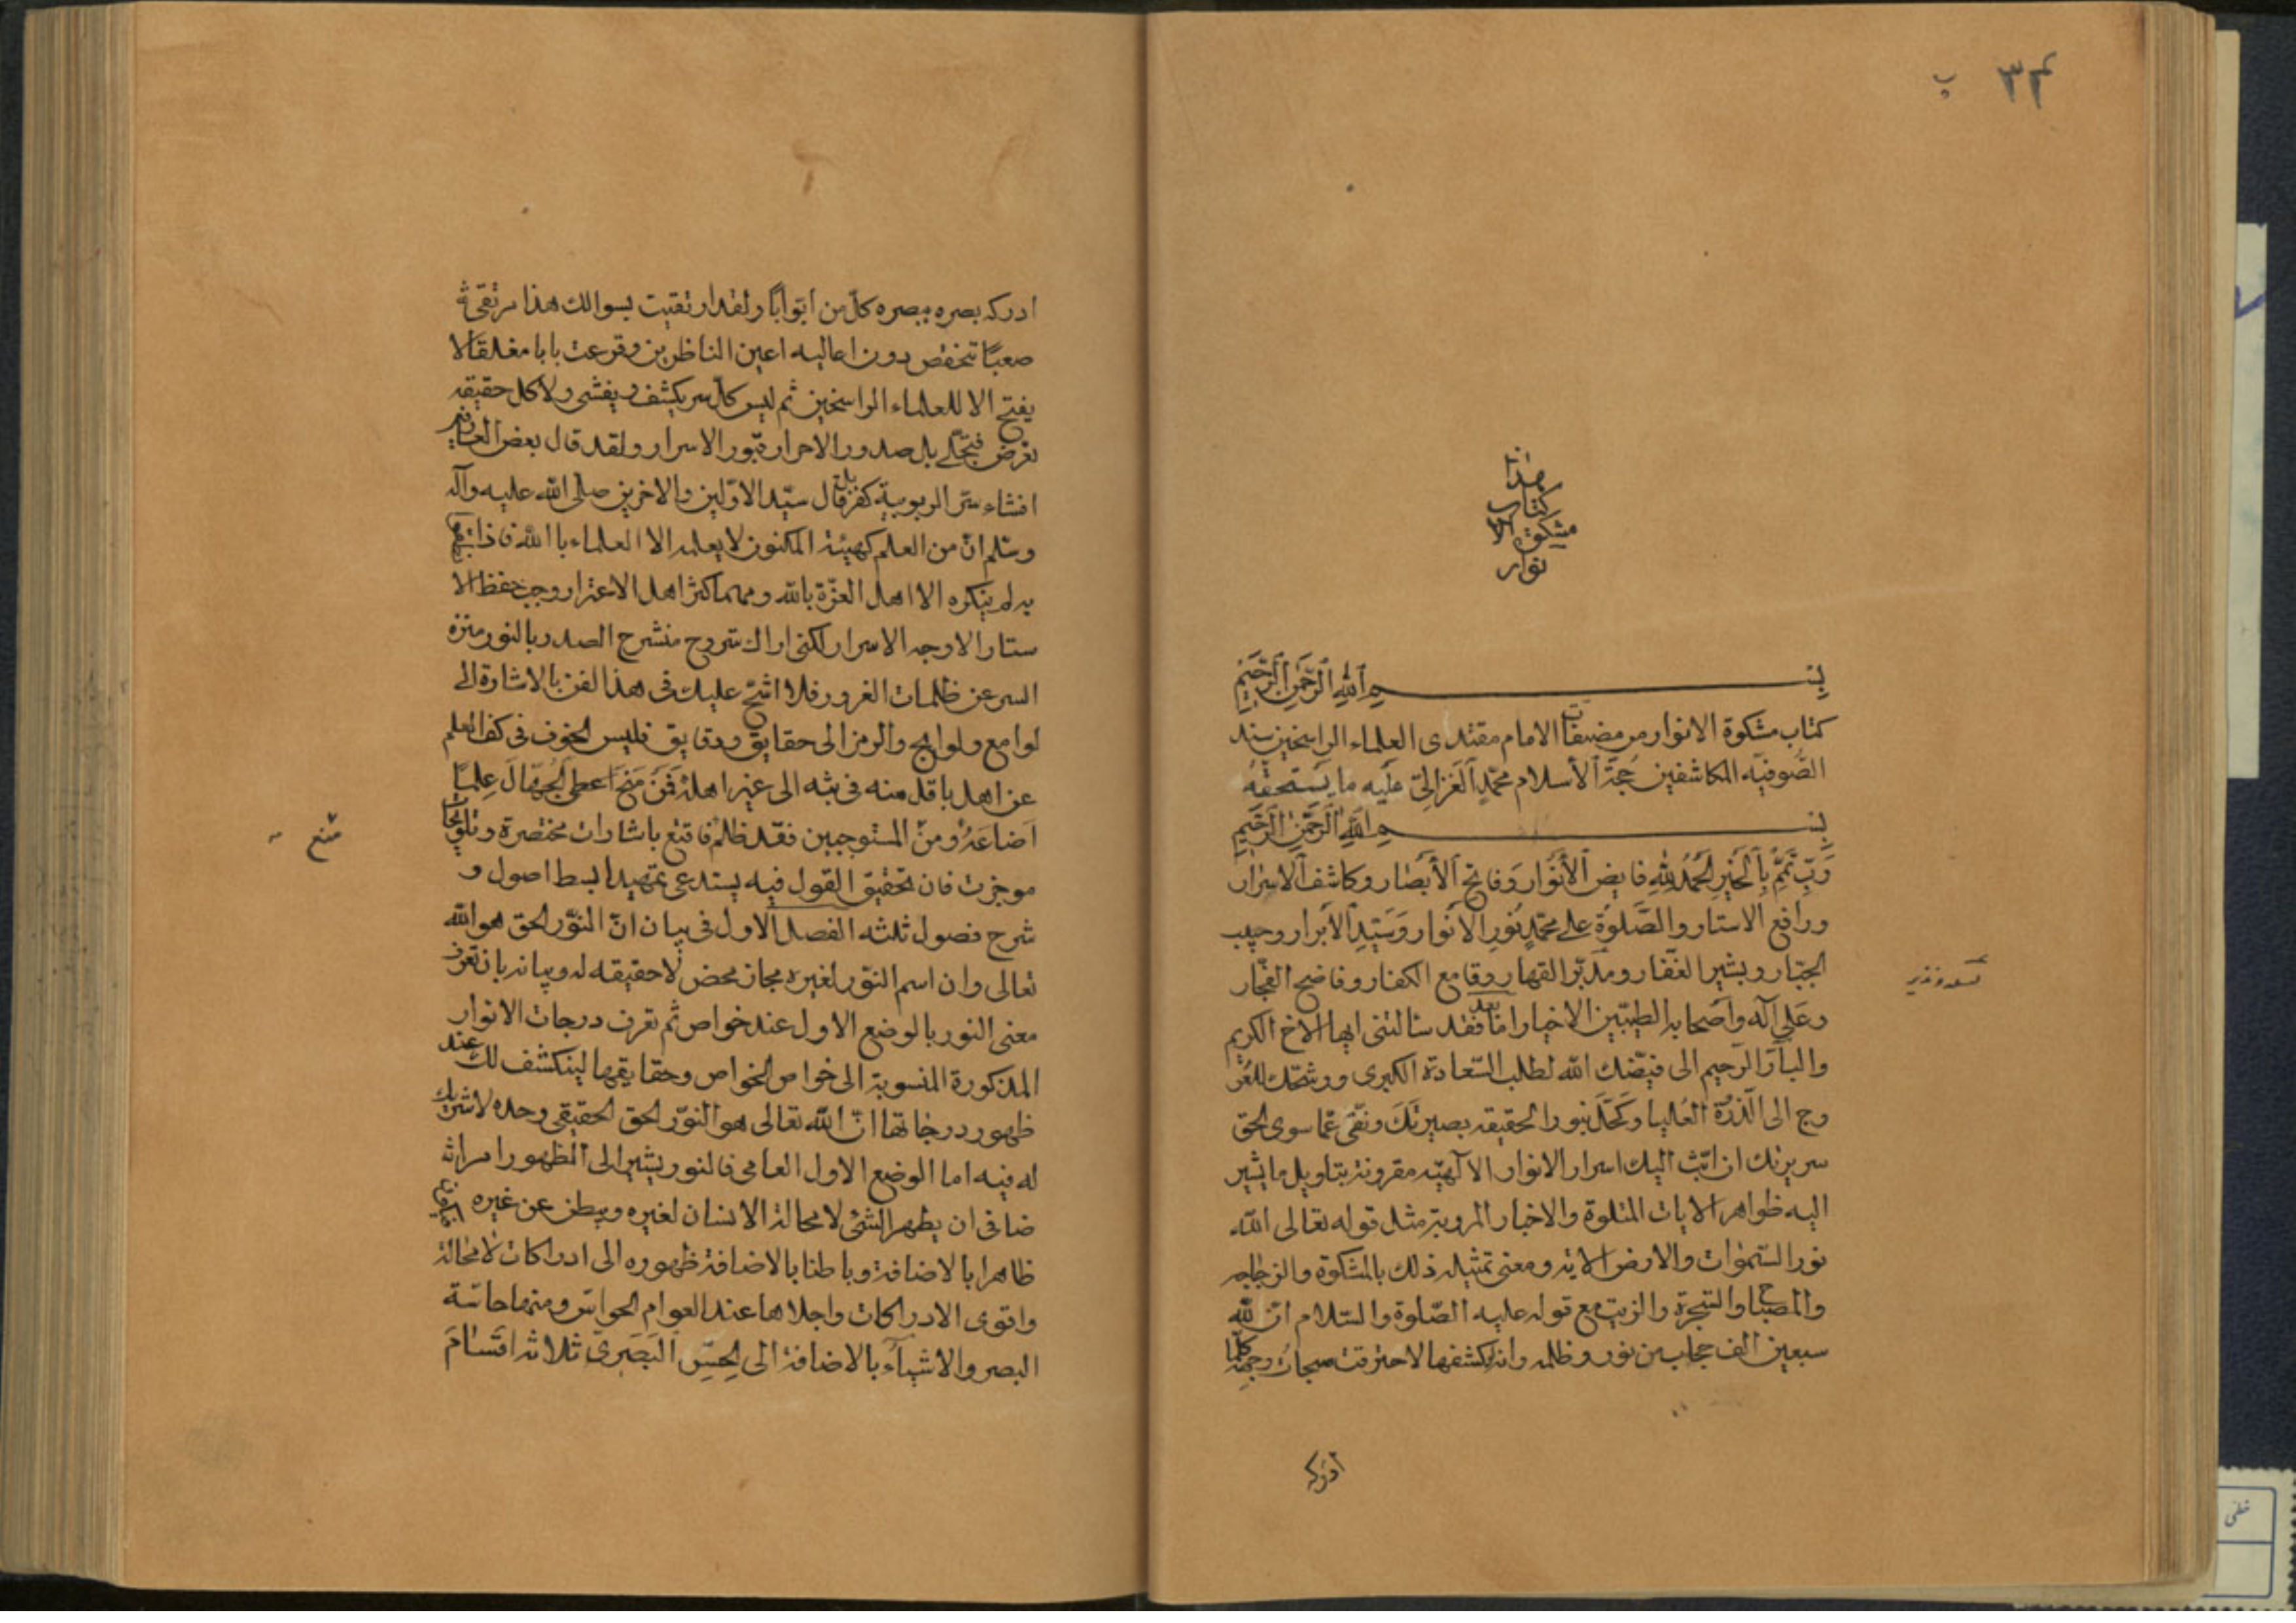 ٣٤ ب
هذا
كتاب
مشكوة الا
نوار
بسم الله الرّحمن الرّحيم
كتاب مشكوة الانوار من مصنفات الامام مقتدى العلماء الراسخين سند
الصّوفيّه المكاشفين حُجّة الأسلام محمّد الغزالىّ عليه ما يستحقّه
بسم الله الرّحمن الرّحيم
رَبِّ تَمِّمْ بِالْخَيْرِ الحَمدُ للهِ فايض الأَنْوار وَفاتح الأَبصار وكاشف الاسرار
ورافع الاستار والصَّلوة على محمّدٍ نُورِ الأنوار وسَيّدِ الأبرار وحبيب
الجبّار وبشير الغفّار ومدبّر القهار وقامع الكفار وفاضح الفجّار
وعَلى آله وأصحابه الطيبّين الاخيار امّا بعد فقد سالتنى ايها الاخ الكريم
والبآرّ الرّحيم الى فيّضك الله لطلب السّعادة الكبرى ورشّحك للعُر
وج الى الذّروة العُليا وكحّل بنور الحقيقه بصيرتك ونقّى عمّا سوى الحق
سريرتك ان ابُثّ اليك اسرار الانوار الآلهيّه مقرونة بتاويل ما يشير
اليه ظواهر الايات المتلوة والاخبار المروية مثل قوله تعالى اللّه
نور السّموات والارض الايه ومعنى تمثيله ذلك بالمشكوة والزجاجه
والمصباح والشجرة والزيت مع قوله عليه الصّلوة والسّلام انّ للّه
سبعين الف حجاب من نور وظلمه وانه لو كشفها لاحترقت سبحات وجهه كلّما
ادركه
ادركه بصره ببصره كلّ من ابوابًا ولقد ارتقيت بسوالك هذا مرتقىً
صعبًا تنخفض دون اعاليه اعين الناظرين وقرعت بابا مغلقًا لا
يفتح الا للعلماء الراسخين ثم ليس كلّ سر يكشف ويفشى ولا كل حقيقه
تعرض فتجلّى بل صدور الاحرار قبور الاسرار ولقد قال بعض العارفين
افشاء سرّ الربوبية كفر بل قال سيّد الاوّلين والاخرين صلى اللّه عليه وآله
وسّلم انّ من العلم كهيئة المكنون لا يعلمه الا العلماء باللّه فاذا
به لم ينكره الا اهل العزّة باللّه ومهما كثر اهل الاعترار وجب حفظ الا
ستار الا وجه الاسرار لكنى اراك مشروح منشرح الصدر بالنور منزه
السر عن ظلمات الغرور فلا اشحّ عليك فى هذا الفن بالاشارة الى
لوامع ولوايح والرمز الى حقايق ودقايق فليس الخوف فى كف العلم
عن اهله باقل منه فى بثه الى غير اهله فَمَنْ مَنَحَ اعطى الجُهّالَ عِلمًا
اَضاعَهُ ومنْ المستوجبين فقد ظلم فاقنع باشارات مختصرة وتلويحات
منع
موجزت فان تحقيق القول فيه يستدعى تمهيد ابسط اصول و
شرح فصول ثلثه الفصل الاول فى بيان انّ النوّر الحق هو اللّه
تعالى وان اسم النوّر لغيره مجاز محض لا حقيقه له وبيانه بان تعرف
معنى النور بالوضع الاول عند خواص ثم تعرف درجات الانوار
المذكورة المنسوبة الى خواص الخواص وحقايقها لينكشف لك عند
ظهور درجاتها انّ اللّه تعالى هو النوّر الحق الحقيقى وحده لا شريك
له فيه اما الوضع الاول العامى فالنور يشير الى الظهور امر اثه
ضافى ان يظهر الشئ لا محالة الانسان لغيره ويبطن عن غيره
ظاهرا بالاضافة وباطنا بالاضافة ظهوره الى ادراكات لا محالة
واقوى الادراكات واجلاها عند العوام الحواسّ ومنها حاسّة
البصر والاشيآء بالاضافة الى الحِسِّ البَصَرىّ ثلاثه اقسامَ